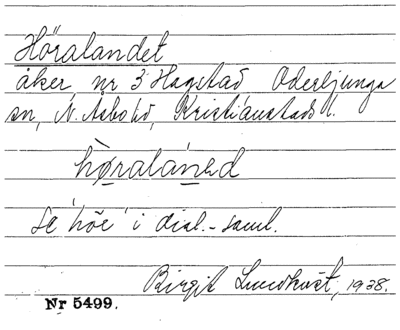 Höralandet
åker, nr 3 Hagstad Oderljunga
sn, N. Åsbo hd, Kristianstads l.
hø̀ralánəd
Se 'höe' i dial.-saml.
Birgit Lundkvist, 1938.
Nr 5499.